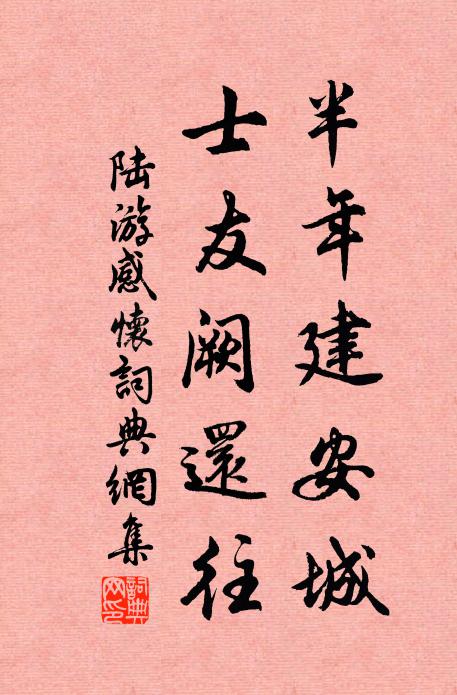 半年建安城
士友阙還往
陆游感懷詞典網集
詞典网印